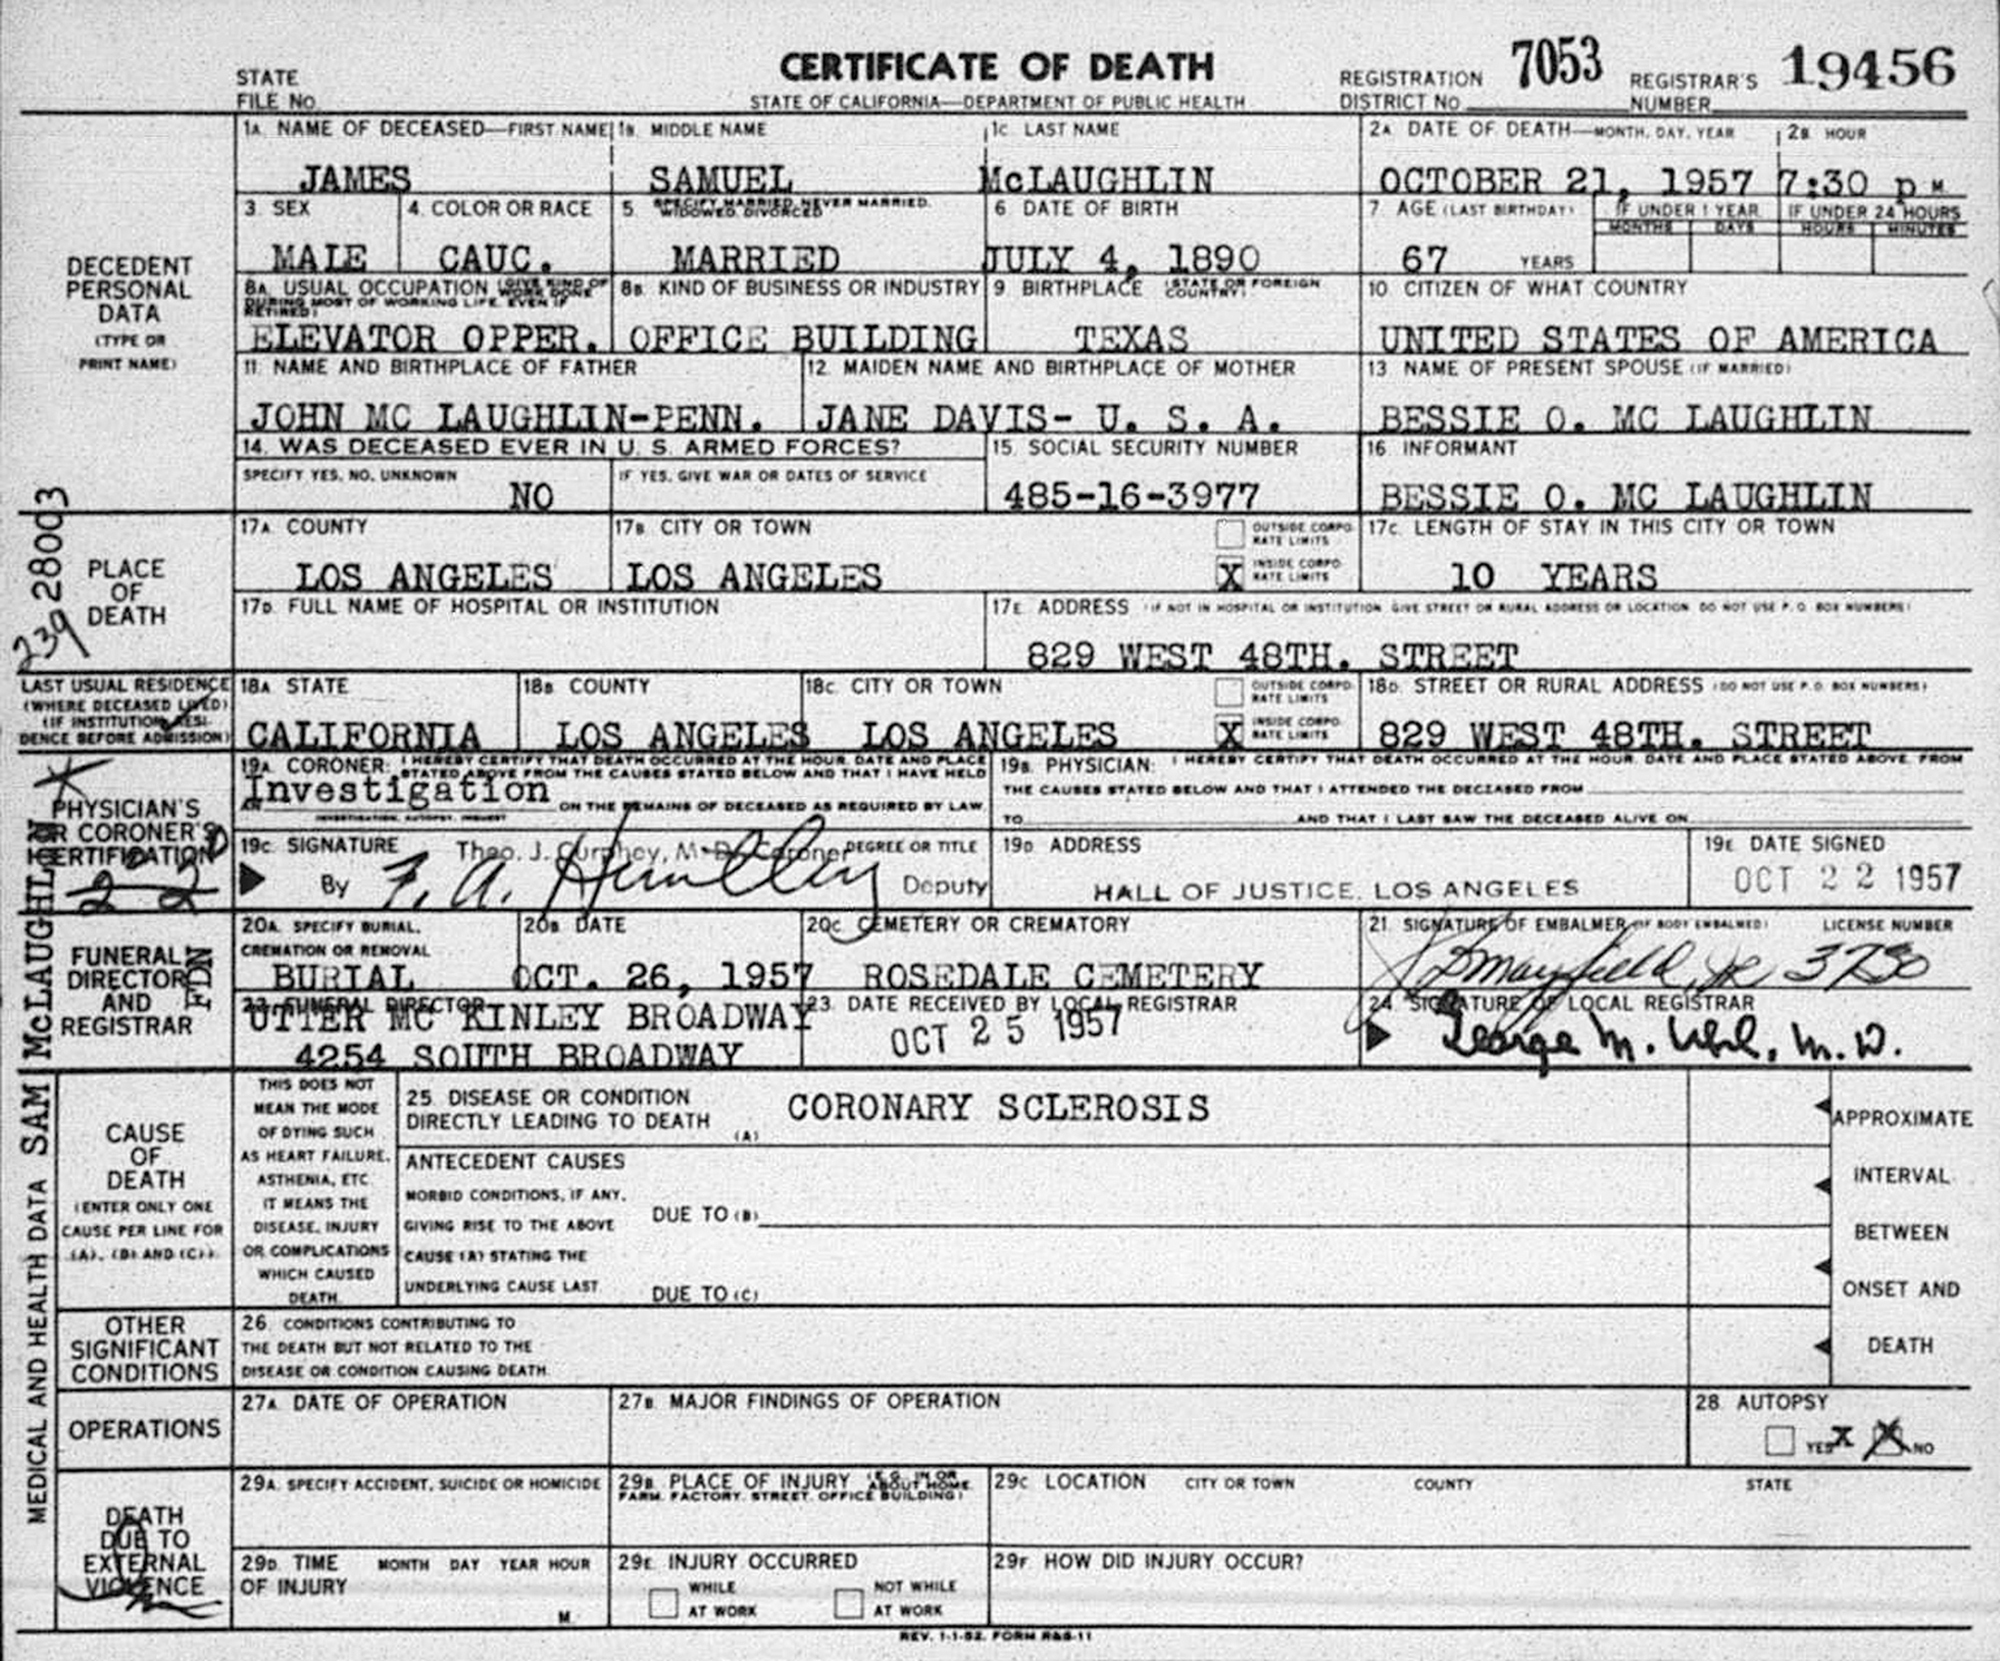 CERTIFICATE OF DEATH
STATE OF CALIFORNIA—DEPARTMENT OF PUBLIC HEALTH
STATE
FILE No.
REGISTRATION
DISTRICT No. 7053
REGISTRAR'S
NUMBER 19456
DECEDENT
PERSONAL
DATA
(TYPE OR
PRINT NAME)
1A. NAME OF DECEASED—FIRST NAME
JAMES
1B. MIDDLE NAME
SAMUEL
1C. LAST NAME
McLAUGHLIN
2A. DATE OF DEATH—MONTH, DAY, YEAR
OCTOBER 21, 1957
2B. HOUR
7:30 p M.
3. SEX
MALE
4. COLOR OR RACE
CAUC.
5. SPECIFY MARRIED, NEVER MARRIED,
WIDOWED, DIVORCED
MARRIED
6. DATE OF BIRTH
JULY 4, 1890
7. AGE (LAST BIRTHDAY)
67 YEARS
IF UNDER 1 YEAR
MONTHS DAYS
IF UNDER 24 HOURS
HOURS MINUTES
8A. USUAL OCCUPATION (GIVE KIND OF WORK DONE
DURING MOST OF WORKING LIFE, EVEN IF
RETIRED)
ELEVATOR OPPER.
8B. KIND OF BUSINESS OR INDUSTRY
OFFICE BUILDING
9. BIRTHPLACE (STATE OR FOREIGN
COUNTRY)
TEXAS
10. CITIZEN OF WHAT COUNTRY
UNITED STATES OF AMERICA
11. NAME AND BIRTHPLACE OF FATHER
JOHN MC LAUGHLIN-PENN.
12. MAIDEN NAME AND BIRTHPLACE OF MOTHER
JANE DAVIS- U. S. A.
13. NAME OF PRESENT SPOUSE (IF MARRIED)
BESSIE O. MC LAUGHLIN
14. WAS DECEASED EVER IN U. S. ARMED FORCES?
SPECIFY YES, NO, UNKNOWN
NO
IF YES, GIVE WAR OR DATES OF SERVICE
15. SOCIAL SECURITY NUMBER
485-16-3977
16. INFORMANT
BESSIE O. MC LAUGHLIN
239 28003
PLACE
OF
DEATH
17A. COUNTY
LOS ANGELES
17B. CITY OR TOWN
LOS ANGELES
OUTSIDE CORPO-
RATE LIMITS
X INSIDE CORPO-
RATE LIMITS
17C. LENGTH OF STAY IN THIS CITY OR TOWN
10 YEARS
17D. FULL NAME OF HOSPITAL OR INSTITUTION
17E. ADDRESS (IF NOT IN HOSPITAL OR INSTITUTION, GIVE STREET OR RURAL ADDRESS OR LOCATION. DO NOT USE P. O. BOX NUMBERS)
829 WEST 48TH. STREET
LAST USUAL RESIDENCE
(WHERE DECEASED LIVED)
(IF INSTITUTION, RESI-
DENCE BEFORE ADMISSION)
18A. STATE
CALIFORNIA
18B. COUNTY
LOS ANGELES
18C. CITY OR TOWN
LOS ANGELES
OUTSIDE CORPO-
RATE LIMITS
X INSIDE CORPO-
RATE LIMITS
18D. STREET OR RURAL ADDRESS (DO NOT USE P. O. BOX NUMBERS)
829 WEST 48TH. STREET
PHYSICIAN'S
OR CORONER'S
CERTIFICATION
2 2
19A. CORONER: I HEREBY CERTIFY THAT DEATH OCCURRED AT THE HOUR, DATE AND PLACE
STATED ABOVE FROM THE CAUSES STATED BELOW AND THAT I HAVE HELD
AN Investigation ON THE REMAINS OF DECEASED AS REQUIRED BY LAW.
INVESTIGATION, AUTOPSY, INQUEST
19B. PHYSICIAN: I HEREBY CERTIFY THAT DEATH OCCURRED AT THE HOUR, DATE AND PLACE STATED ABOVE, FROM
THE CAUSES STATED BELOW AND THAT I ATTENDED THE DECEASED FROM
TO AND THAT I LAST SAW THE DECEASED ALIVE ON
19C. SIGNATURE
Theo. J. Curphey, M. D. Coroner DEGREE OR TITLE
By F. A. Deputy
19D. ADDRESS
HALL OF JUSTICE, LOS ANGELES
19E. DATE SIGNED
OCT 22 1957
FUNERAL
DIRECTOR
AND
REGISTRAR
FDN
20A. SPECIFY BURIAL,
CREMATION OR REMOVAL
BURIAL
20B. DATE
OCT. 26, 1957
20C. CEMETERY OR CREMATORY
ROSEDALE CEMETERY
21. SIGNATURE OF EMBALMER (IF BODY EMBALMED) LICENSE NUMBER
Mayfield, Jr 3730
22. FUNERAL DIRECTOR
UTTER MC KINLEY BROADWAY
4254 SOUTH BROADWAY
23. DATE RECEIVED BY LOCAL REGISTRAR
OCT 25 1957
24. SIGNATURE OF LOCAL REGISTRAR
George M. Uhl, M. D.
MEDICAL AND HEALTH DATA SAM McLAUGHLIN
CAUSE
OF
DEATH
(ENTER ONLY ONE
CAUSE PER LINE FOR
(A), (B) AND (C))
THIS DOES NOT
MEAN THE MODE
OF DYING SUCH
AS HEART FAILURE,
ASTHENIA, ETC.
IT MEANS THE
DISEASE, INJURY
OR COMPLICATIONS
WHICH CAUSED
DEATH.
25. DISEASE OR CONDITION
DIRECTLY LEADING TO DEATH (A)
CORONARY SCLEROSIS
ANTECEDENT CAUSES
MORBID CONDITIONS, IF ANY,
GIVING RISE TO THE ABOVE
CAUSE (A) STATING THE
UNDERLYING CAUSE LAST.
DUE TO (B)
DUE TO (C)
APPROXIMATE
INTERVAL
BETWEEN
ONSET AND
DEATH
OTHER
SIGNIFICANT
CONDITIONS
26. CONDITIONS CONTRIBUTING TO
THE DEATH BUT NOT RELATED TO THE
DISEASE OR CONDITION CAUSING DEATH.
OPERATIONS
27A. DATE OF OPERATION
27B. MAJOR FINDINGS OF OPERATION
28. AUTOPSY
YES X X NO
DEATH
DUE TO
EXTERNAL
VIOLENCE
29A. SPECIFY ACCIDENT, SUICIDE OR HOMICIDE
29B. PLACE OF INJURY (E.G. IN OR ABOUT HOME,
FARM, FACTORY, STREET, OFFICE BUILDING)
29C. LOCATION CITY OR TOWN COUNTY STATE
29D. TIME MONTH DAY YEAR HOUR
OF INJURY
M.
29E. INJURY OCCURRED
WHILE
AT WORK
NOT WHILE
AT WORK
29F. HOW DID INJURY OCCUR?
REV. 1-1-52. FORM R&S-11